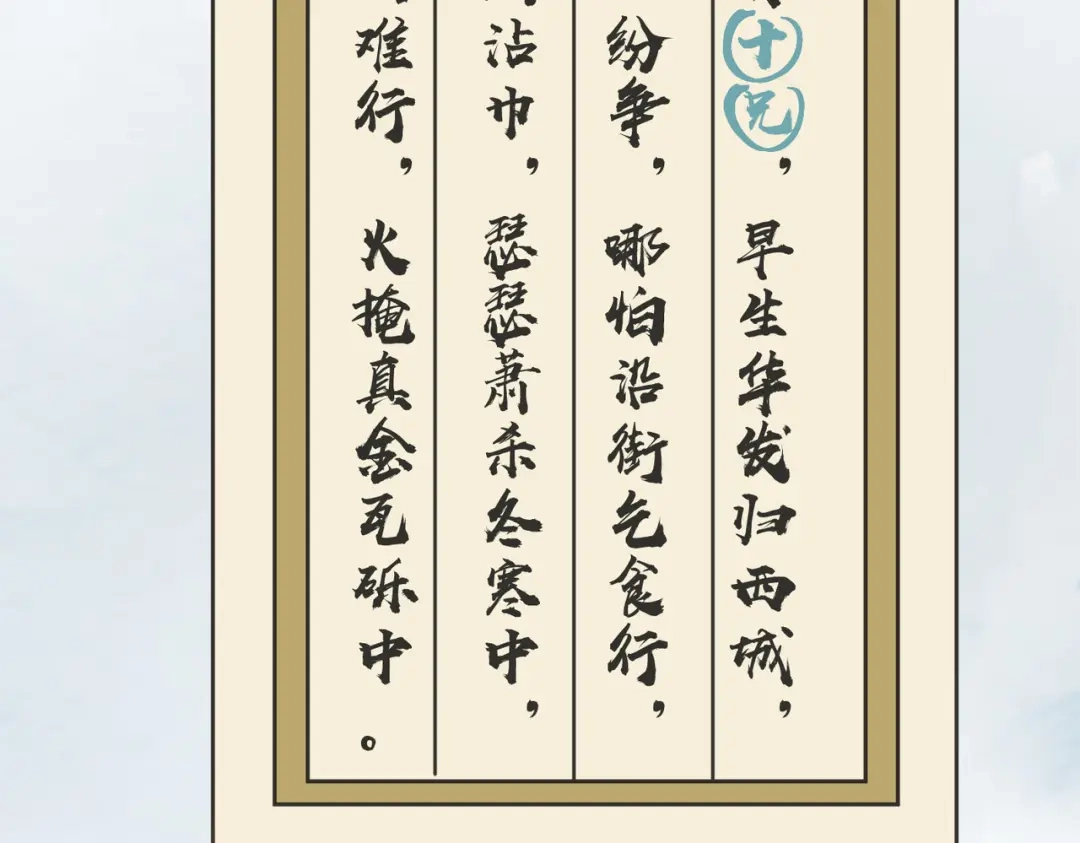 十兄，早生华发归西城，
纷争，哪怕沿街乞食行，
沾巾，瑟瑟萧杀冬寒中，
难行，火掩真金瓦砾中。